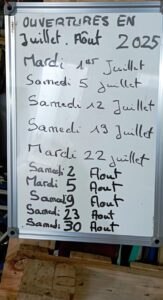 OUVERTURES EN
Juillet. Août 2025
Mardi 1er Juillet
Samedi 5 juillet
Samedi 12 Juillet
Samedi 19 Juillet
Mardi 22 juillet
Samedi 2 Aout
Mardi 5 Aout
Samedi 9 Aout
Samedi 23 Aout
Samedi 30 Aout